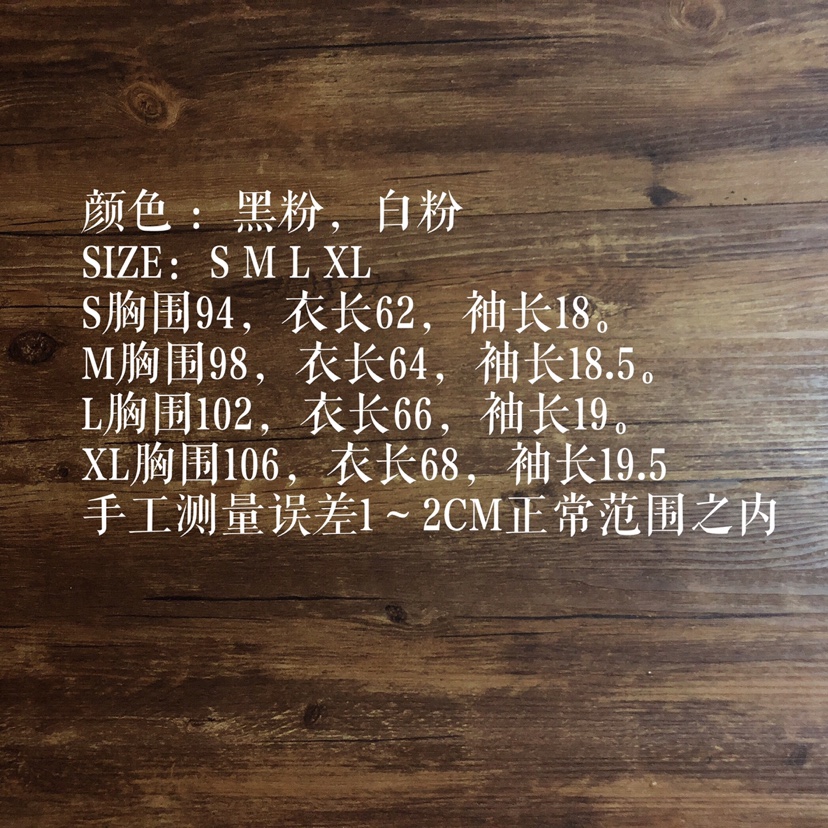 颜色：黑粉，白粉
SIZE：S M L XL
S胸围94，衣长62，袖长18。
M胸围98，衣长64，袖长18.5。
L胸围102，衣长66，袖长19。
XL胸围106，衣长68，袖长19.5
手工测量误差1～2CM正常范围之内